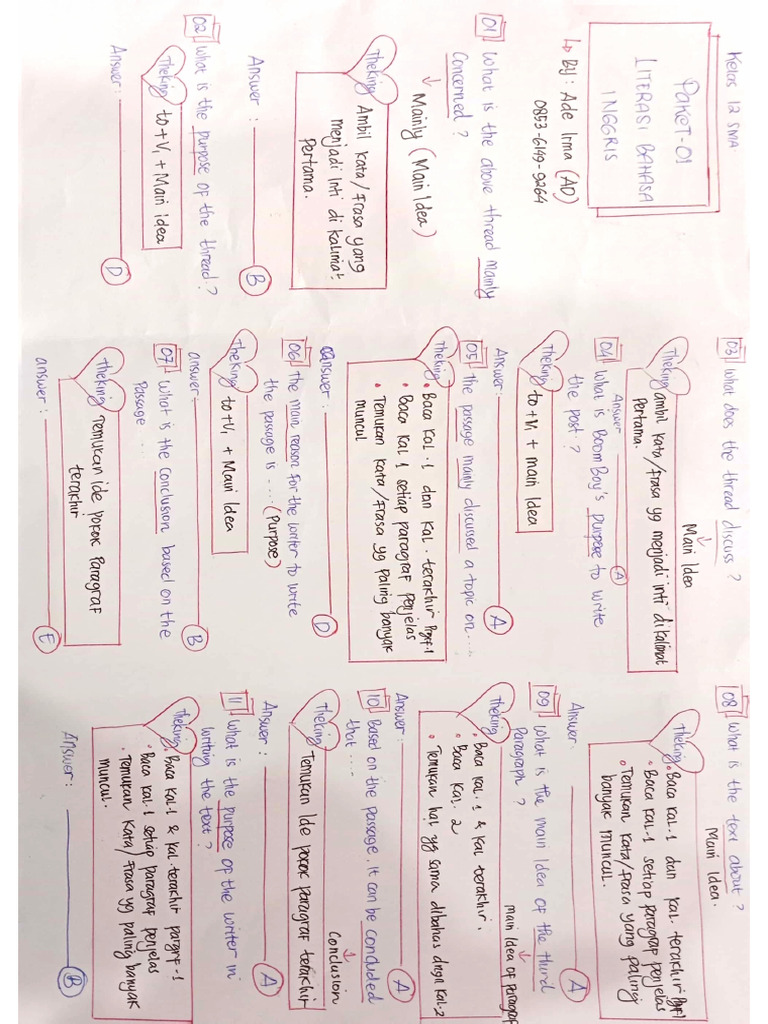 Kelas 12 SMA
PAKET-01
LITERASI BAHASA
INGGRIS
↳ By: Ade Irma (AD)
0853-6149-9264
01 What is the above thread mainly
Concerned ?
↓ Mainly (Main Idea)
Theking
Ambil kata/frasa yang
menjadi inti di kalimat
pertama.
Answer : B
02 What is the purpose of the thread ?
Theking to + V1 + Main idea
Answer : D
03 What does the thread discuss ?
↓ Main Idea
Theking ambil kata/frasa yg menjadi inti di kalimat
pertama.
Answer A
04 What is BoomBoy's purpose to write
the post ?
Theking to + V1 + main Idea
Answer : A
05 the passage mainly discussed a topic on.....
Theking • Baca kal.1 dan kal. terakhir Pgrf-1
• Baca kal 1 setiap paragraf penjelas
• Temukan kata/frasa yg paling banyak
muncul
answer : D
06 the main reason for the writer to write
the passage is .... (Purpose)
Theking to + V1 + Main Idea
answer : B
07 What is the conclusion based on the
Passage ...
Theking Temukan ide pokok Paragraf
terakhir
answer : E
08 What is the text about ?
Main Idea.
Theking • Baca kal 1 dan kal terakhir Pgrf-1
• Baca kal-1 setiap paragrap penjelas
• Temukan kata/frasa yang paling
banyak muncul.
Answer. A
09 What is the main Idea of the third
Paragraph ?
↓ main Idea of paragraf
Theking • Baca kal.1 & kal terakhir.
• Baca kal. 2
• Temukan hal yg sama dibahas dngn kal-2
Answer : A
10 Based on the passage, it can be concluded
that ....
↓ Conclusion
Theking Temukan Ide pokok paragraf terakhir
Answer : A
11 What is the purpose of the writer in
writing the text ?
Theking • Baca kal-1 & kal.terakhir pargrf-1
• Baca kal-1 setiap paragraf penjelas
• Temukan kata/frasa yg paling banyak
muncul.
Answer : B